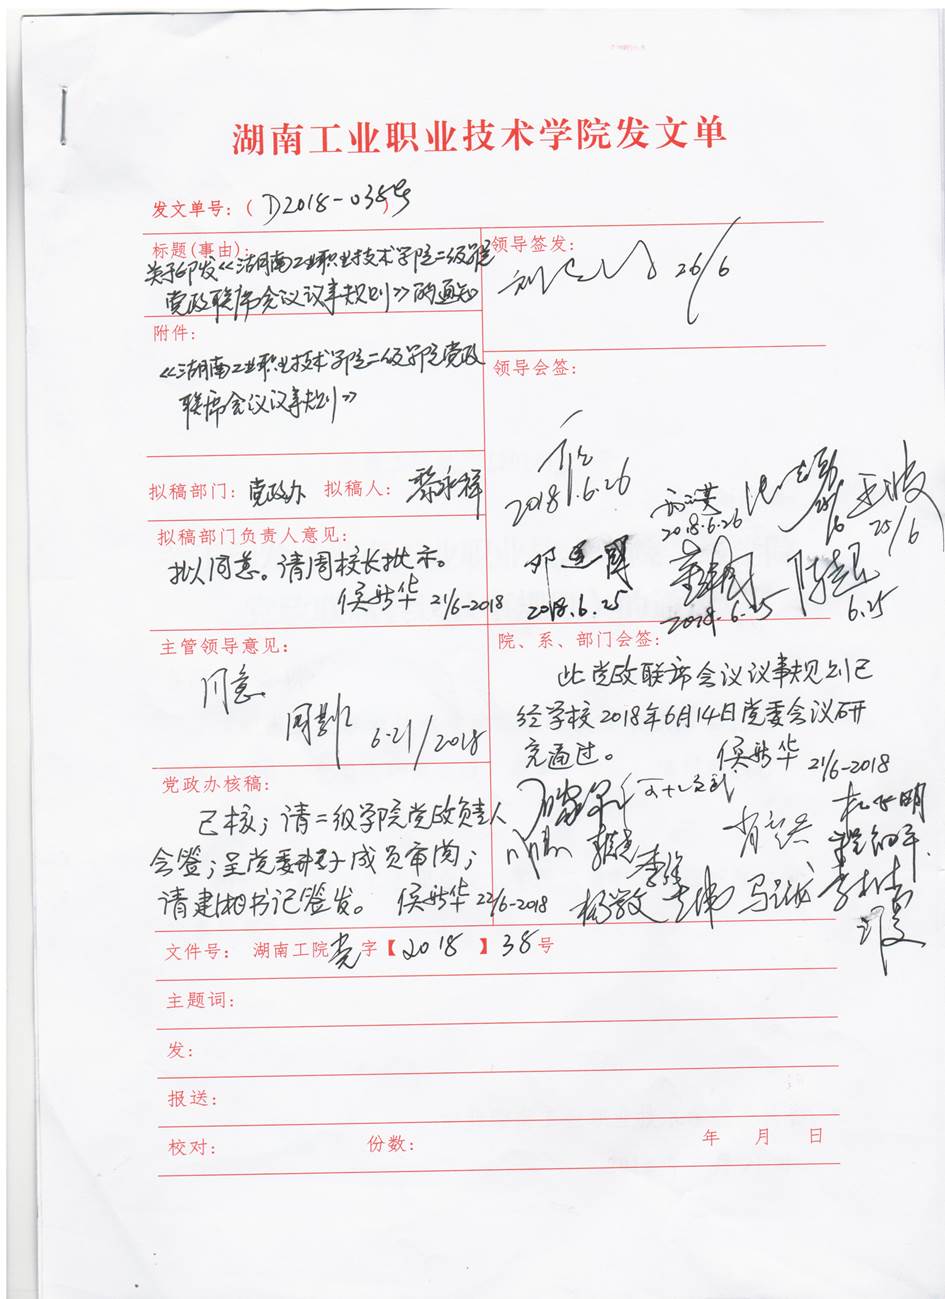 湖南工业职业技术学院发文单
发文单号：（D2018-038号）
标题（事由）：
关于印发《湖南工业职业技术学院二级学院
党政联席会议议事规则》的通知
领导签发：
26/6
附件：
《湖南工业职业技术学院二级学院党政
联席会议议事规则》
领导会签：
2018.6.26
2018.6.26
25/6
2018.6.25
2018.6.25
6.25
拟稿部门：党政办 拟稿人：
拟稿部门负责人意见：
拟同意。请周校长批示。
侯新华 21/6-2018
主管领导意见：
同意
6.21/2018
院、系、部门会签：
此党政联席会议议事规则已
经学校2018年6月14日党委会议研
究通过。
侯新华 21/6-2018
杨敬文
李伟
马
党政办核稿：
已核；请二级学院党政负责人
会签；呈党委班子成员审阅；
请建湘书记签发。 侯新华 22/6-2018
文件号： 湖南工院党字【2018】38号
主题词：
发：
报送：
校对： 份数： 年 月 日